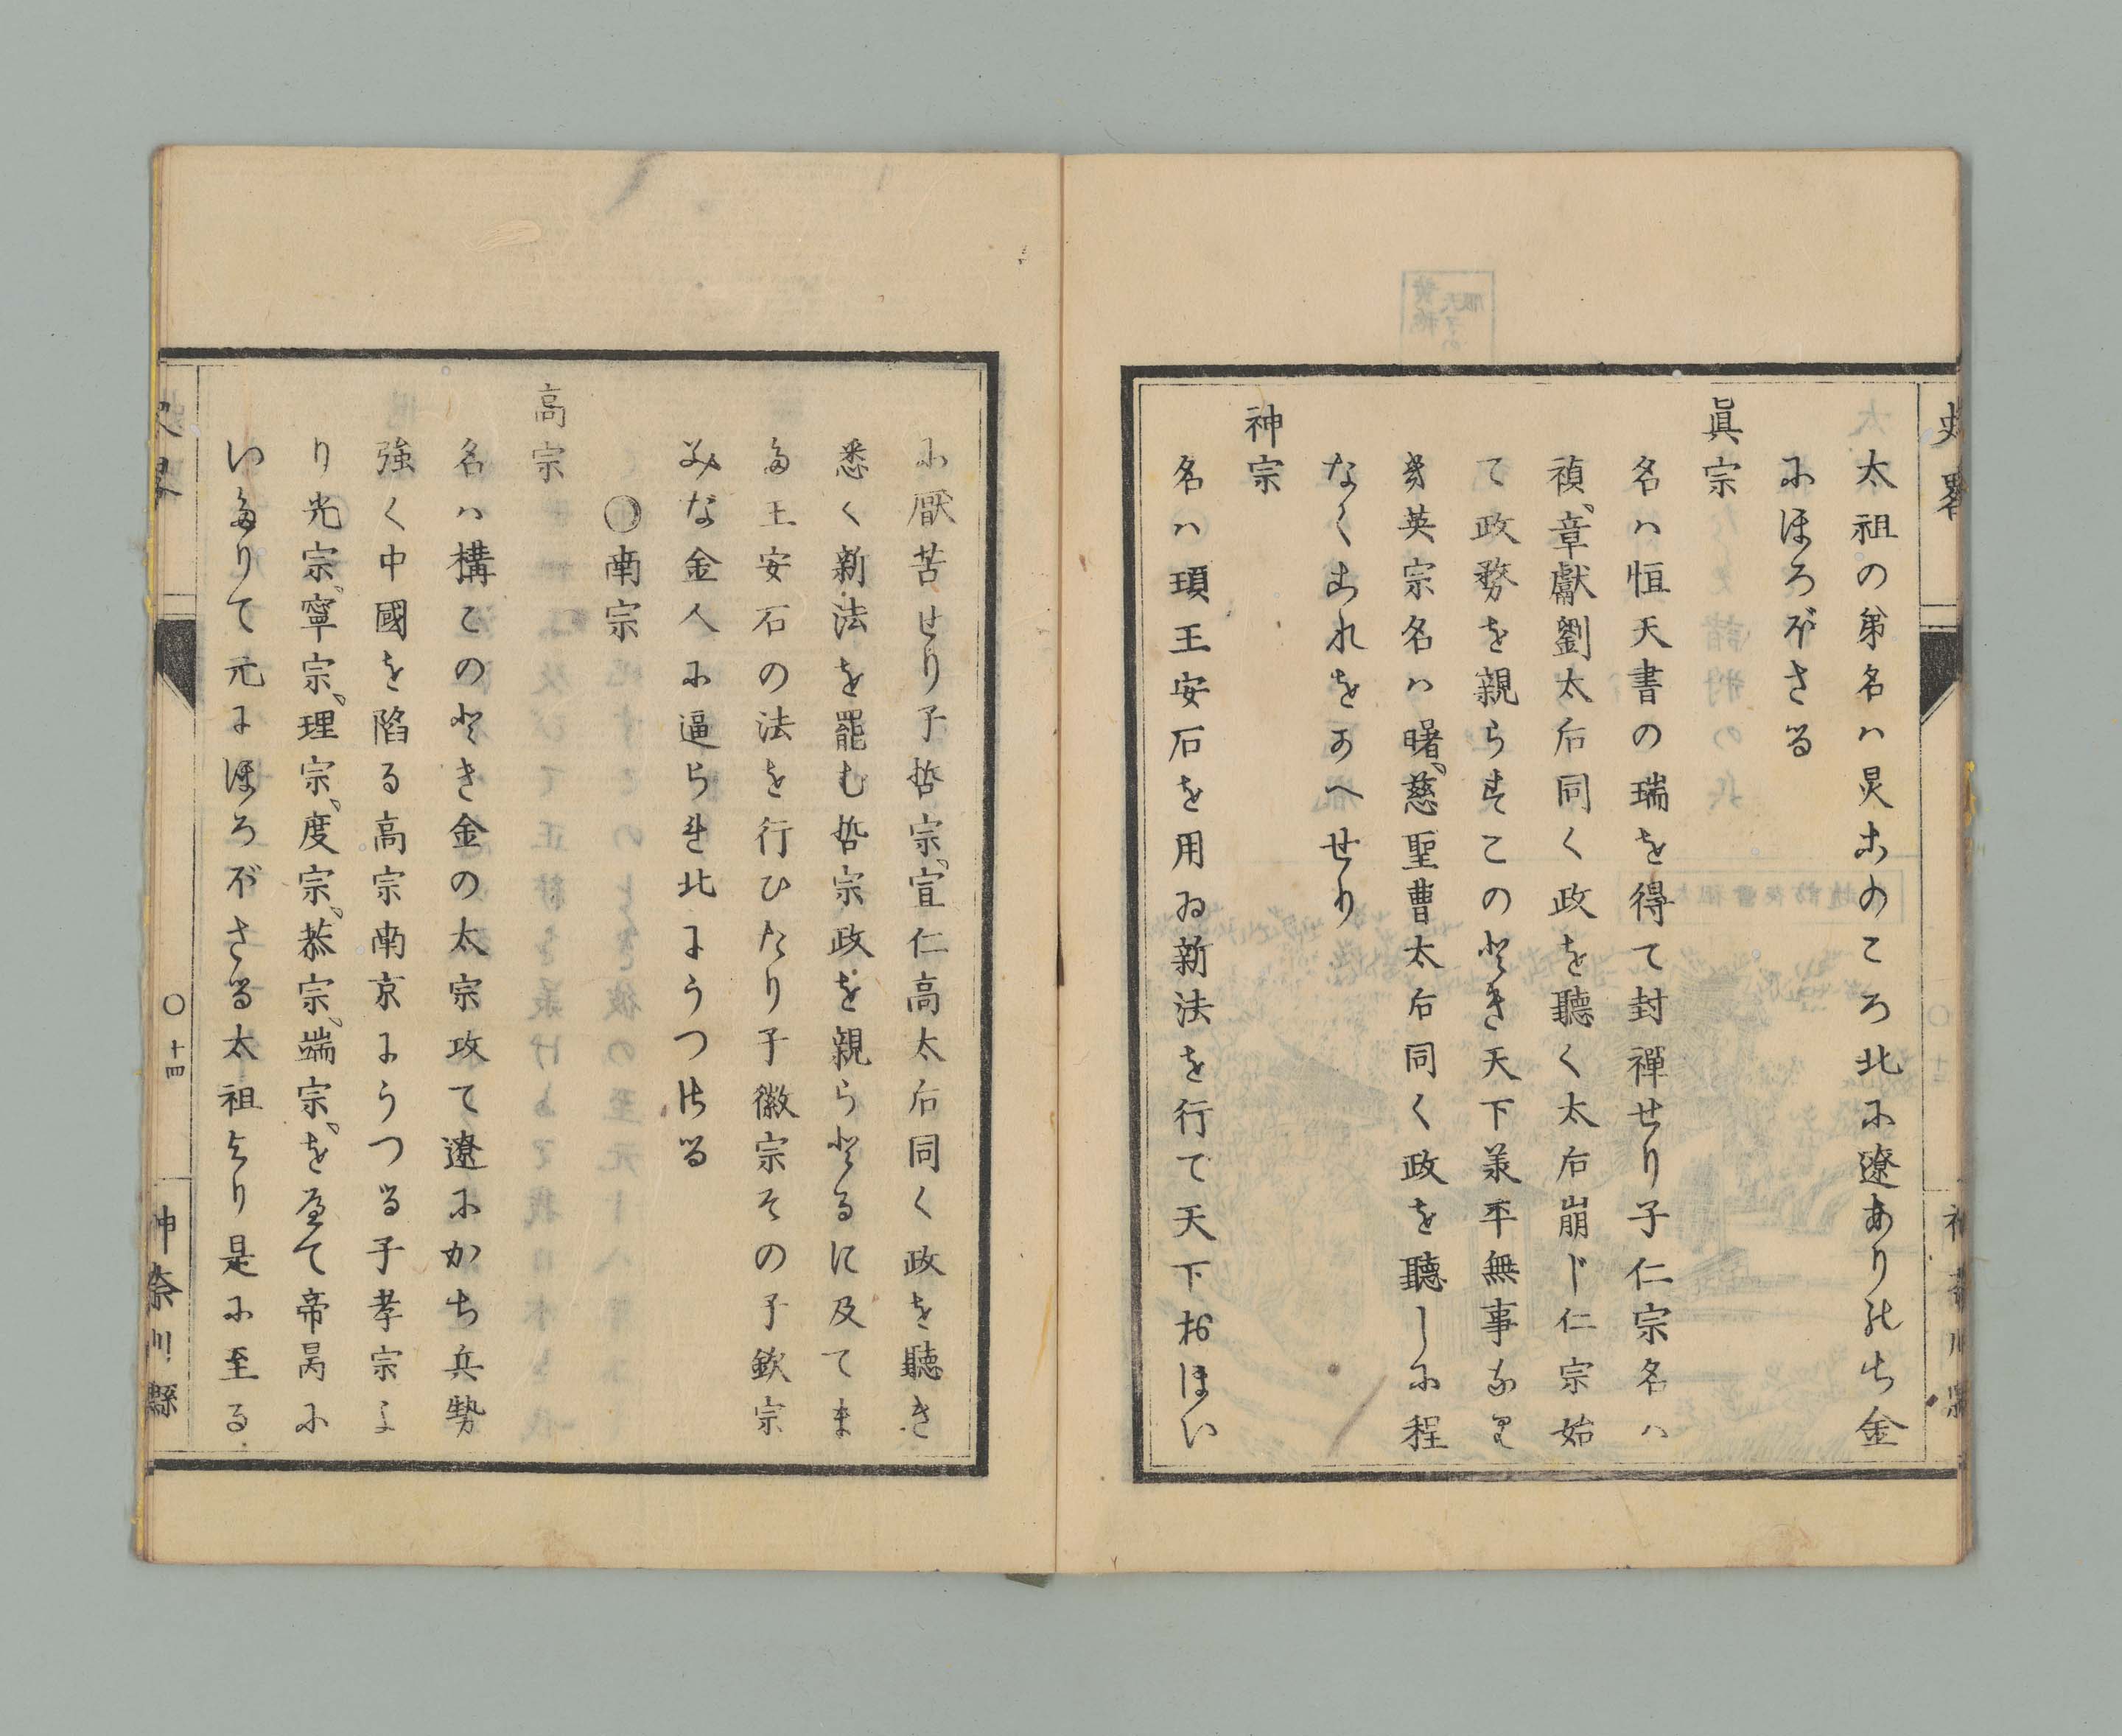 太祖の弟名ハ炅あのころ北に遼ありのち金
にほろぼさる
眞宗
名ハ恒天書の瑞を得て封禪せり子仁宗名ハ
禎、章獻劉太后同く政を聽く太后崩じ仁宗始
て政務を親らすこのとき天下羕平無事なり
き英宗名ハ曙、慈聖曹太后同く政を聽しに程
なくこれをかへせり
神宗
名ハ頊王安石を用ゐ新法を行て天下おほい
に厭苦せり子哲宗、宣仁高太后同く政を聽き
悉く新法を罷む哲宗政を親らとるに及てま
た王安石の法を行ひたり子徽宗その子欽宗
みな金人に逼られ北にうつさる
〇南宗
高宗
名ハ構このとき金の太宗攻て遼にかち兵勢
強く中國を陷る高宗南京にうつる子孝宗よ
り光宗、寧宗、理宗、度宗、恭宗、端宗、を歴て帝昺に
いたりて元にほろぼさる太祖より是に至る
史畧
〇十四
神奈川縣